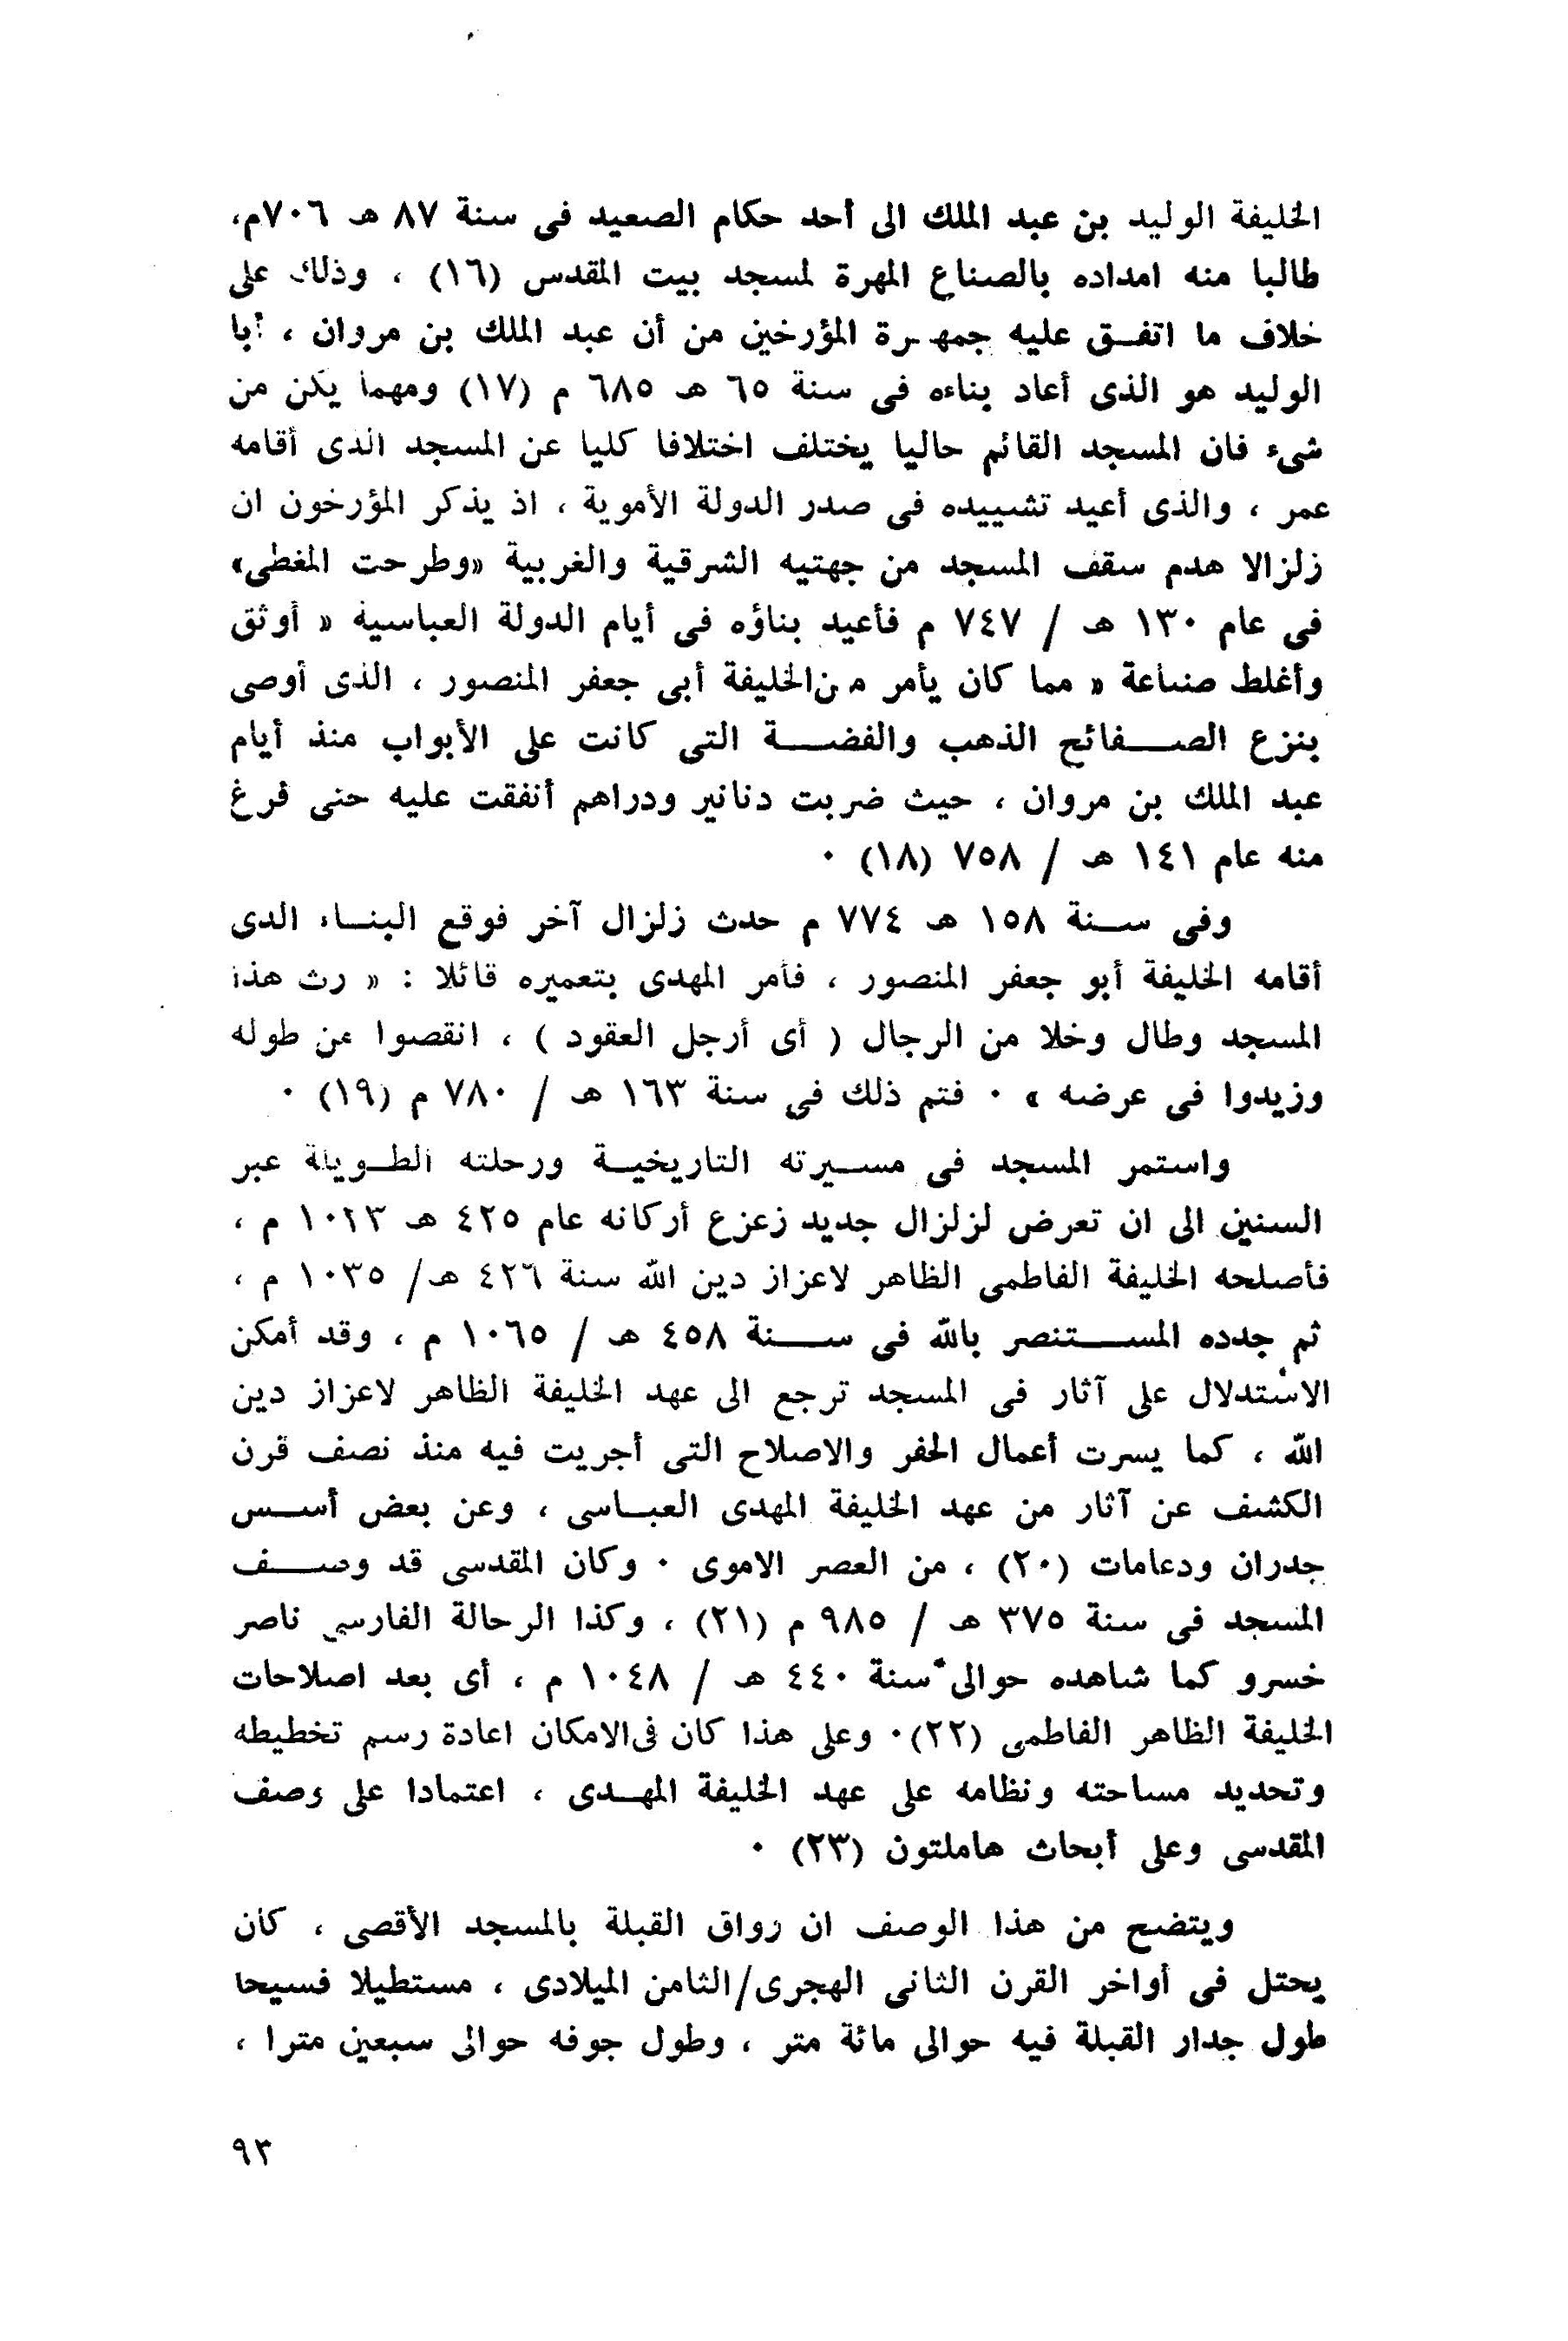 الخليفة الوليد بن عبد الملك الى أحد حكام الصعيد فى سنة ٨٧ هـ ٧٠٦م،
طالبا منه امداده بالصناع المهرة لمسجد بيت المقدس (١٦) ، وذلك على
خلاف ما اتفـق عليه جمهرة المؤرخين من أن عبد الملك بن مروان ، أبا
الوليد هو الذى أعاد بناءه فى سنة ٦٥ هـ ٦٨٥ م (١٧) ومهما يكن من
شىء فان المسجد القائم حاليا يختلف اختلافا كليا عن المسجد الذى أقامه
عمر ، والذى أعيد تشييده فى صدر الدولة الأموية ، اذ يذكر المؤرخون ان
زلزالا هدم سقف المسجد من جهتيه الشرقية والغربية «وطرحت المغطى»
فى عام ١٣٠ هـ / ٧٤٧ م فأعيد بناؤه فى أيام الدولة العباسية « أوثق
وأغلط صناعة « مما كان يأمر من الخليفة أبى جعفر المنصور ، الذى أوصى
بنزع الصـفائح الذهب والفضـة التى كانت على الأبواب منذ أيام
عبد الملك بن مروان ، حيث ضربت دنانير ودراهم أنفقت عليه حتى فرغ
منه عام ١٤١ هـ / ٧٥٨ (١٨) ٠
وفى سـنة ١٥٨ هـ ٧٧٤ م حدث زلزال آخر فوقع البنـاء الذى
أقامه الخليفة أبو جعفر المنصور ، فأمر المهدى بتعميره قائلا : « رث هذا
المسجد وطال وخلا من الرجال ( أى أرجل العقود ) ، انقصوا من طوله
وزيدوا فى عرضه » ٠ فتم ذلك فى سنة ١٦٣ هـ / ٧٨٠ م (١٩) ٠
واستمر المسجد فى مسـيرته التاريخيـة ورحلته الطـويلة عبر
السنين الى ان تعرض لزلزال جديد زعزع أركانه عام ٤٢٥ هـ ١٠٢٣ م ،
فأصلحه الخليفة الفاطمى الظاهر لاعزاز دين الله سنة ٤٢٦ هـ/ ١٠٣٥ م ،
ثم جدده المسـتنصر بالله فى سـنة ٤٥٨ هـ / ١٠٦٥ م ، وقد أمكن
الاستدلال على آثار فى المسجد ترجع الى عهد الخليفة الظاهر لاعزاز دين
الله ، كما يسرت أعمال الحفر والاصلاح التى أجريت فيه منذ نصف قرن
الكشف عن آثار من عهد الخليفة المهدى العبـاسى ، وعن بعض أسـس
جدران ودعامات (٢٠) ، من العصر الاموى ٠ وكان المقدسى قد وصـف
المسجد فى سنة ٣٧٥ هـ / ٩٨٥ م (٢١) ، وكذا الرحالة الفارسى ناصر
خسرو كما شاهده حوالى سنة ٤٤٠ هـ / ١٠٤٨ م ، أى بعد اصلاحات
الخليفة الظاهر الفاطمى (٢٢)٠ وعلى هذا كان فى الامكان اعادة رسم تخطيطه
وتحديد مساحته ونظامه على عهد الخليفة المهـدى ، اعتمادا على وصف
المقدسى وعلى أبحاث هاملتون (٢٣) ٠
ويتضح من هذا الوصف ان رواق القبلة بالمسجد الأقصى ، كان
يحتل فى أواخر القرن الثانى الهجرى/الثامن الميلادى ، مستطيلا فسيحا
طول جدار القبلة فيه حوالى مائة متر ، وطول جوفه حوالى سبعين مترا ،
٩٣